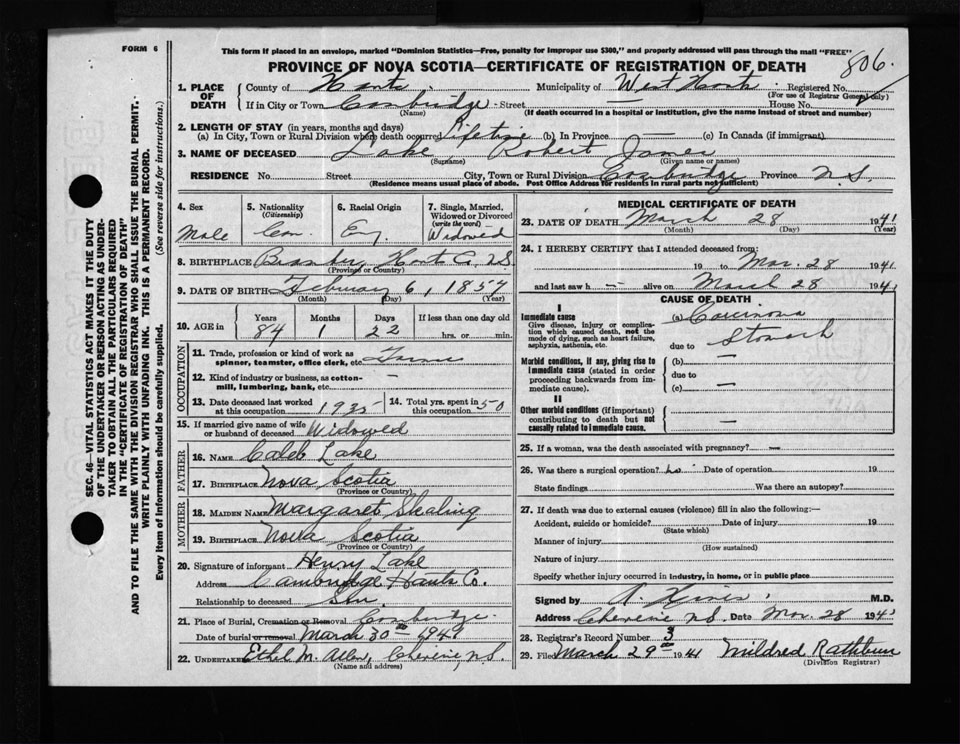 FORM 6
This form if placed in an envelope, marked "Dominion Statistics—Free, penalty for improper use $300," and properly addressed will pass through the mail "FREE"
PROVINCE OF NOVA SCOTIA—CERTIFICATE OF REGISTRATION OF DEATH
806
1. PLACE OF DEATH County of Hants Municipality of West Hants Registered No.
(For use of Registrar General only)
If in City or Town Cambridge Street — House No.
(Name) (If death occurred in a hospital or institution, give the name instead of street and number)
2. LENGTH OF STAY (in years, months and days)
(a) In City, Town or Rural Division where death occurred Lifetime (b) In Province (c) In Canada (if immigrant)
3. NAME OF DECEASED Lake, Robert James
(Surname) (Given name or names)
RESIDENCE No. Street City, Town or Rural Division Cambridge Province N.S.
(Residence means usual place of abode. Post Office Address for residents in rural parts not sufficient)
4. Sex Male
5. Nationality (Citizenship) Can.
6. Racial Origin Eng.
7. Single, Married, Widowed or Divorced (write the word) Widowed
8. BIRTHPLACE Hants Co. N.S.
(Province or Country)
9. DATE OF BIRTH February 6, 1857
(Month) (Day) (Year)
10. AGE in Years Months Days If less than one day
84 1 22 hrs. or min.
OCCUPATION
11. Trade, profession or kind of work as spinner, teamster, office clerk, etc.
12. Kind of industry or business, as cotton-mill, lumbering, bank, etc. —
13. Date deceased last worked at this occupation 1935 14. Total yrs. spent in this occupation 50
15. If married give name of wife or husband of deceased Widowed
FATHER
16. NAME Caleb Lake
17. BIRTHPLACE Nova Scotia
(Province or Country)
MOTHER
18. MAIDEN NAME Margaret Skaling
19. BIRTHPLACE Nova Scotia
(Province or Country)
20. Signature of informant Henry Lake
Address Cambridge Hants Co.
Relationship to deceased Son
21. Place of Burial, Cremation or Removal Cambridge
Date of burial or removal March 30th 1941
22. UNDERTAKER Ethel M. Allen, Cheverie, N.S.
(Name and address)
MEDICAL CERTIFICATE OF DEATH
23. DATE OF DEATH March 28 1941
(Month) (Day) (Year)
24. I HEREBY CERTIFY that I attended deceased from:
19 to Mar. 28 1941
and last saw h — alive on March 28 1941
CAUSE OF DEATH
I
Immediate cause
Give disease, injury or complication which caused death, not the mode of dying, such as heart failure, asphyxia, asthenia, etc.
(a) Carcinoma
Stomach
due to
Morbid conditions, if any, giving rise to immediate cause (stated in order proceeding backwards from immediate cause).
(b) —
due to
(c) —
II
Other morbid conditions (if important) contributing to death but not causally related to immediate cause.
—
25. If a woman, was the death associated with pregnancy? —
26. Was there a surgical operation? No Date of operation 19
State findings Was there an autopsy?
27. If death was due to external causes (violence) fill in also the following:—
Accident, suicide or homicide? Date of injury 19
(State which)
Manner of injury
(How sustained)
Nature of injury
Specify whether injury occurred in industry, in home, or in public place
Signed by M.D.
Address Cheverie N.S. Date Mar. 28 1941
28. Registrar's Record Number 3
29. Filed March 29th 1941 Mildred Rathbun
(Division Registrar)
SEC. 46—VITAL STATISTICS ACT MAKES IT THE DUTY
OF THE UNDERTAKER OR PERSON ACTING AS UNDER-
TAKER TO OBTAIN ALL THE PARTICULARS REQUIRED
IN THE "CERTIFICATE OF REGISTRATION OF DEATH"
AND TO FILE THE SAME WITH THE DIVISION REGISTRAR WHO SHALL ISSUE THE BURIAL PERMIT.
WRITE PLAINLY WITH UNFADING INK. THIS IS A PERMANENT RECORD.
Every item of Information should be carefully supplied. (See reverse side for instructions.)